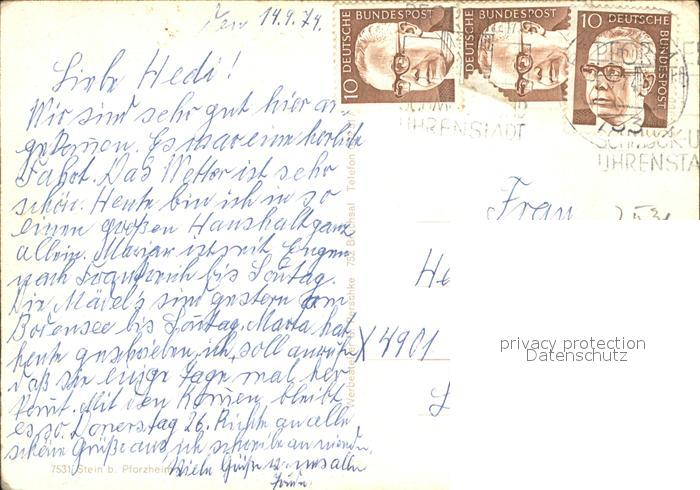 den 14.9.74.
Liebe Hedi!
Wir sind sehr gut hier an-
gekommen. Es war eine herrliche
Fahrt. Das Wetter ist sehr
schön. Heute bin ich in so
einen großen Haushalt ganz
allein. Marian ist mit Eugen
nach Frankreich bis Sontag.
Die Mädel's sind gestern am
Bodensee bis Sontag. Marta hat
heute geschrieben, ich soll anrufen
daß sie einige Tage mal her
komt. Mit den Kommen bleibt
es so. Donerstag 26. Richte an alle
schöne Grüße aus, ich schreibe an wieder.
Viele Grüße von uns allen
7531 Stein b. Pforzheim
752 Bruchsal Telefon
DEUTSCHE BUNDESPOST 10
DEUTSCHE BUNDESPOST
10 DEUTSCHE BUNDESPOST
PFORZHEIM
UHRENSTADT
753
SCHMUCK-U
UHRENSTA
Frau
He
X 4901
privacy protection
Datenschutz